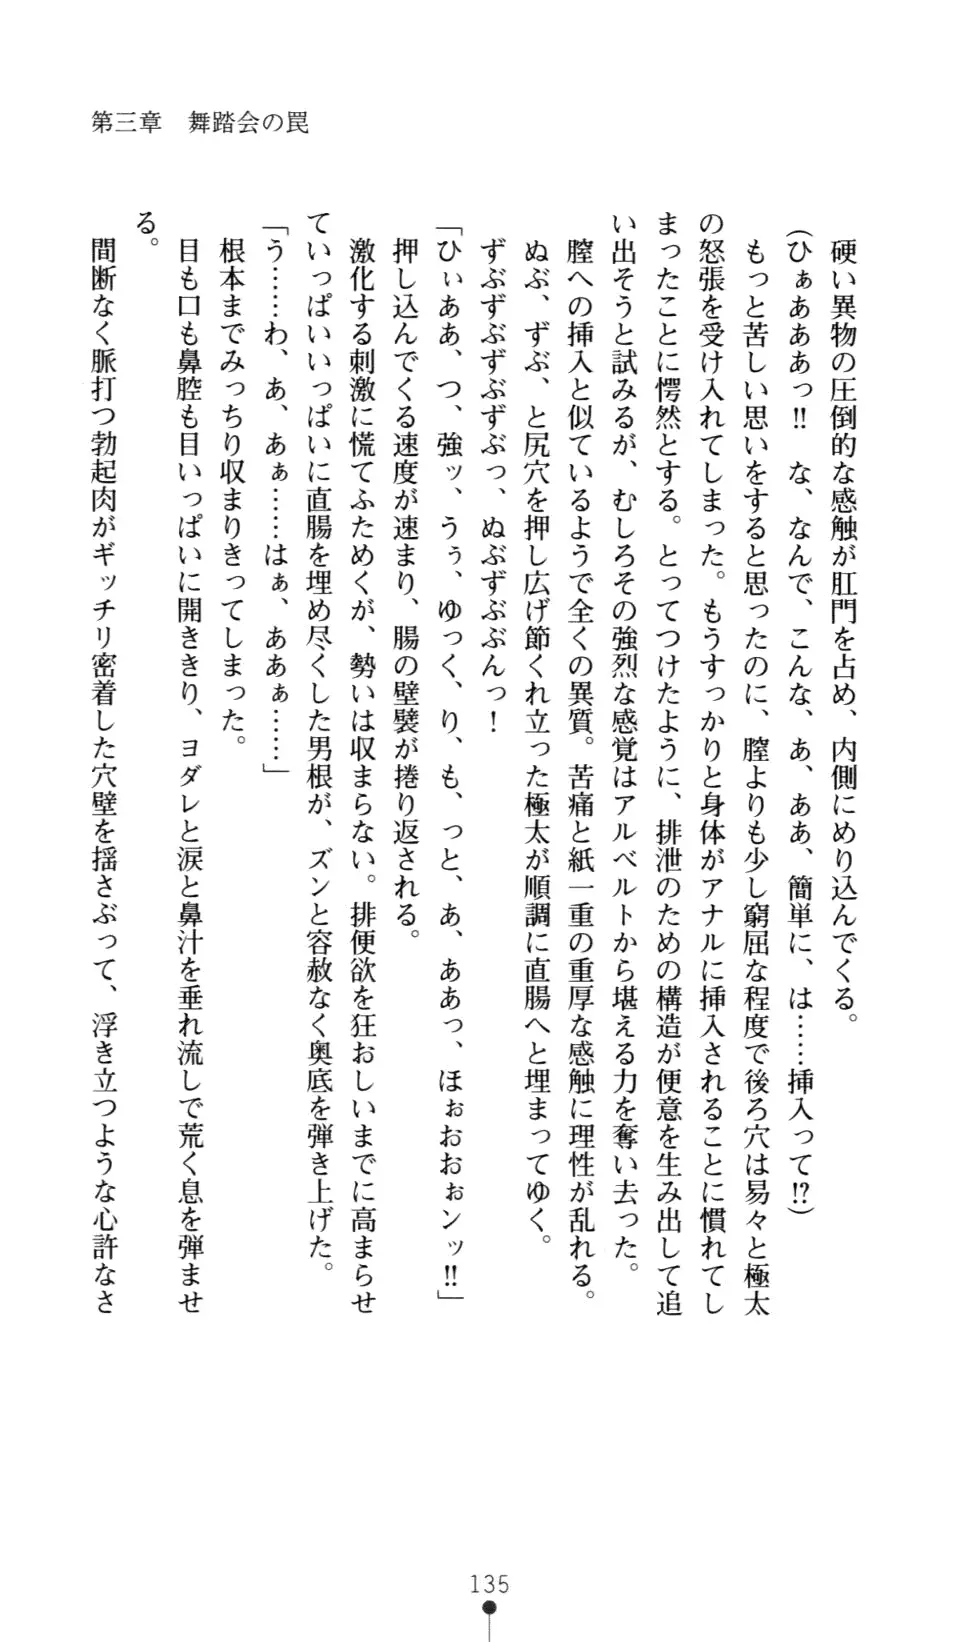 第三章　舞踏会の罠
硬い異物の圧倒的な感触が肛門を占め、内側にめり込んでくる。
（ひぁあああっ‼　な、なんで、こんな、あ、ああ、簡単に、は……挿入って⁉）
もっと苦しい思いをすると思ったのに、膣よりも少し窮屈な程度で後ろ穴は易々と極太
の怒張を受け入れてしまった。もうすっかりと身体がアナルに挿入されることに慣れてし
まったことに愕然とする。とってつけたように、排泄のための構造が便意を生み出して追
い出そうと試みるが、むしろその強烈な感覚はアルベルトから堪える力を奪い去った。
膣への挿入と似ているようで全くの異質。苦痛と紙一重の重厚な感触に理性が乱れる。
ぬぶ、ずぶ、と尻穴を押し広げ節くれ立った極太が順調に直腸へと埋まってゆく。
ずぶずぶずぶずぶっ、ぬぶずぶぶんっ！
「ひぃああ、つ、強ッ、うぅ、ゆっく、り、も、っと、あ、ああっ、ほぉおおぉンッ‼」
押し込んでくる速度が速まり、腸の壁襞が捲り返される。
激化する刺激に慌てふためくが、勢いは収まらない。排便欲を狂おしいまでに高まらせ
ていっぱいいっぱいに直腸を埋め尽くした男根が、ズンと容赦なく奥底を弾き上げた。
「う……わ、あ、あぁ……はぁ、ああぁ……」
根本までみっちり収まりきってしまった。
目も口も鼻腔も目いっぱいに開ききり、ヨダレと涙と鼻汁を垂れ流しで荒く息を弾ませ
る。
間断なく脈打つ勃起肉がギッチリ密着した穴壁を揺さぶって、浮き立つような心許なさ
135